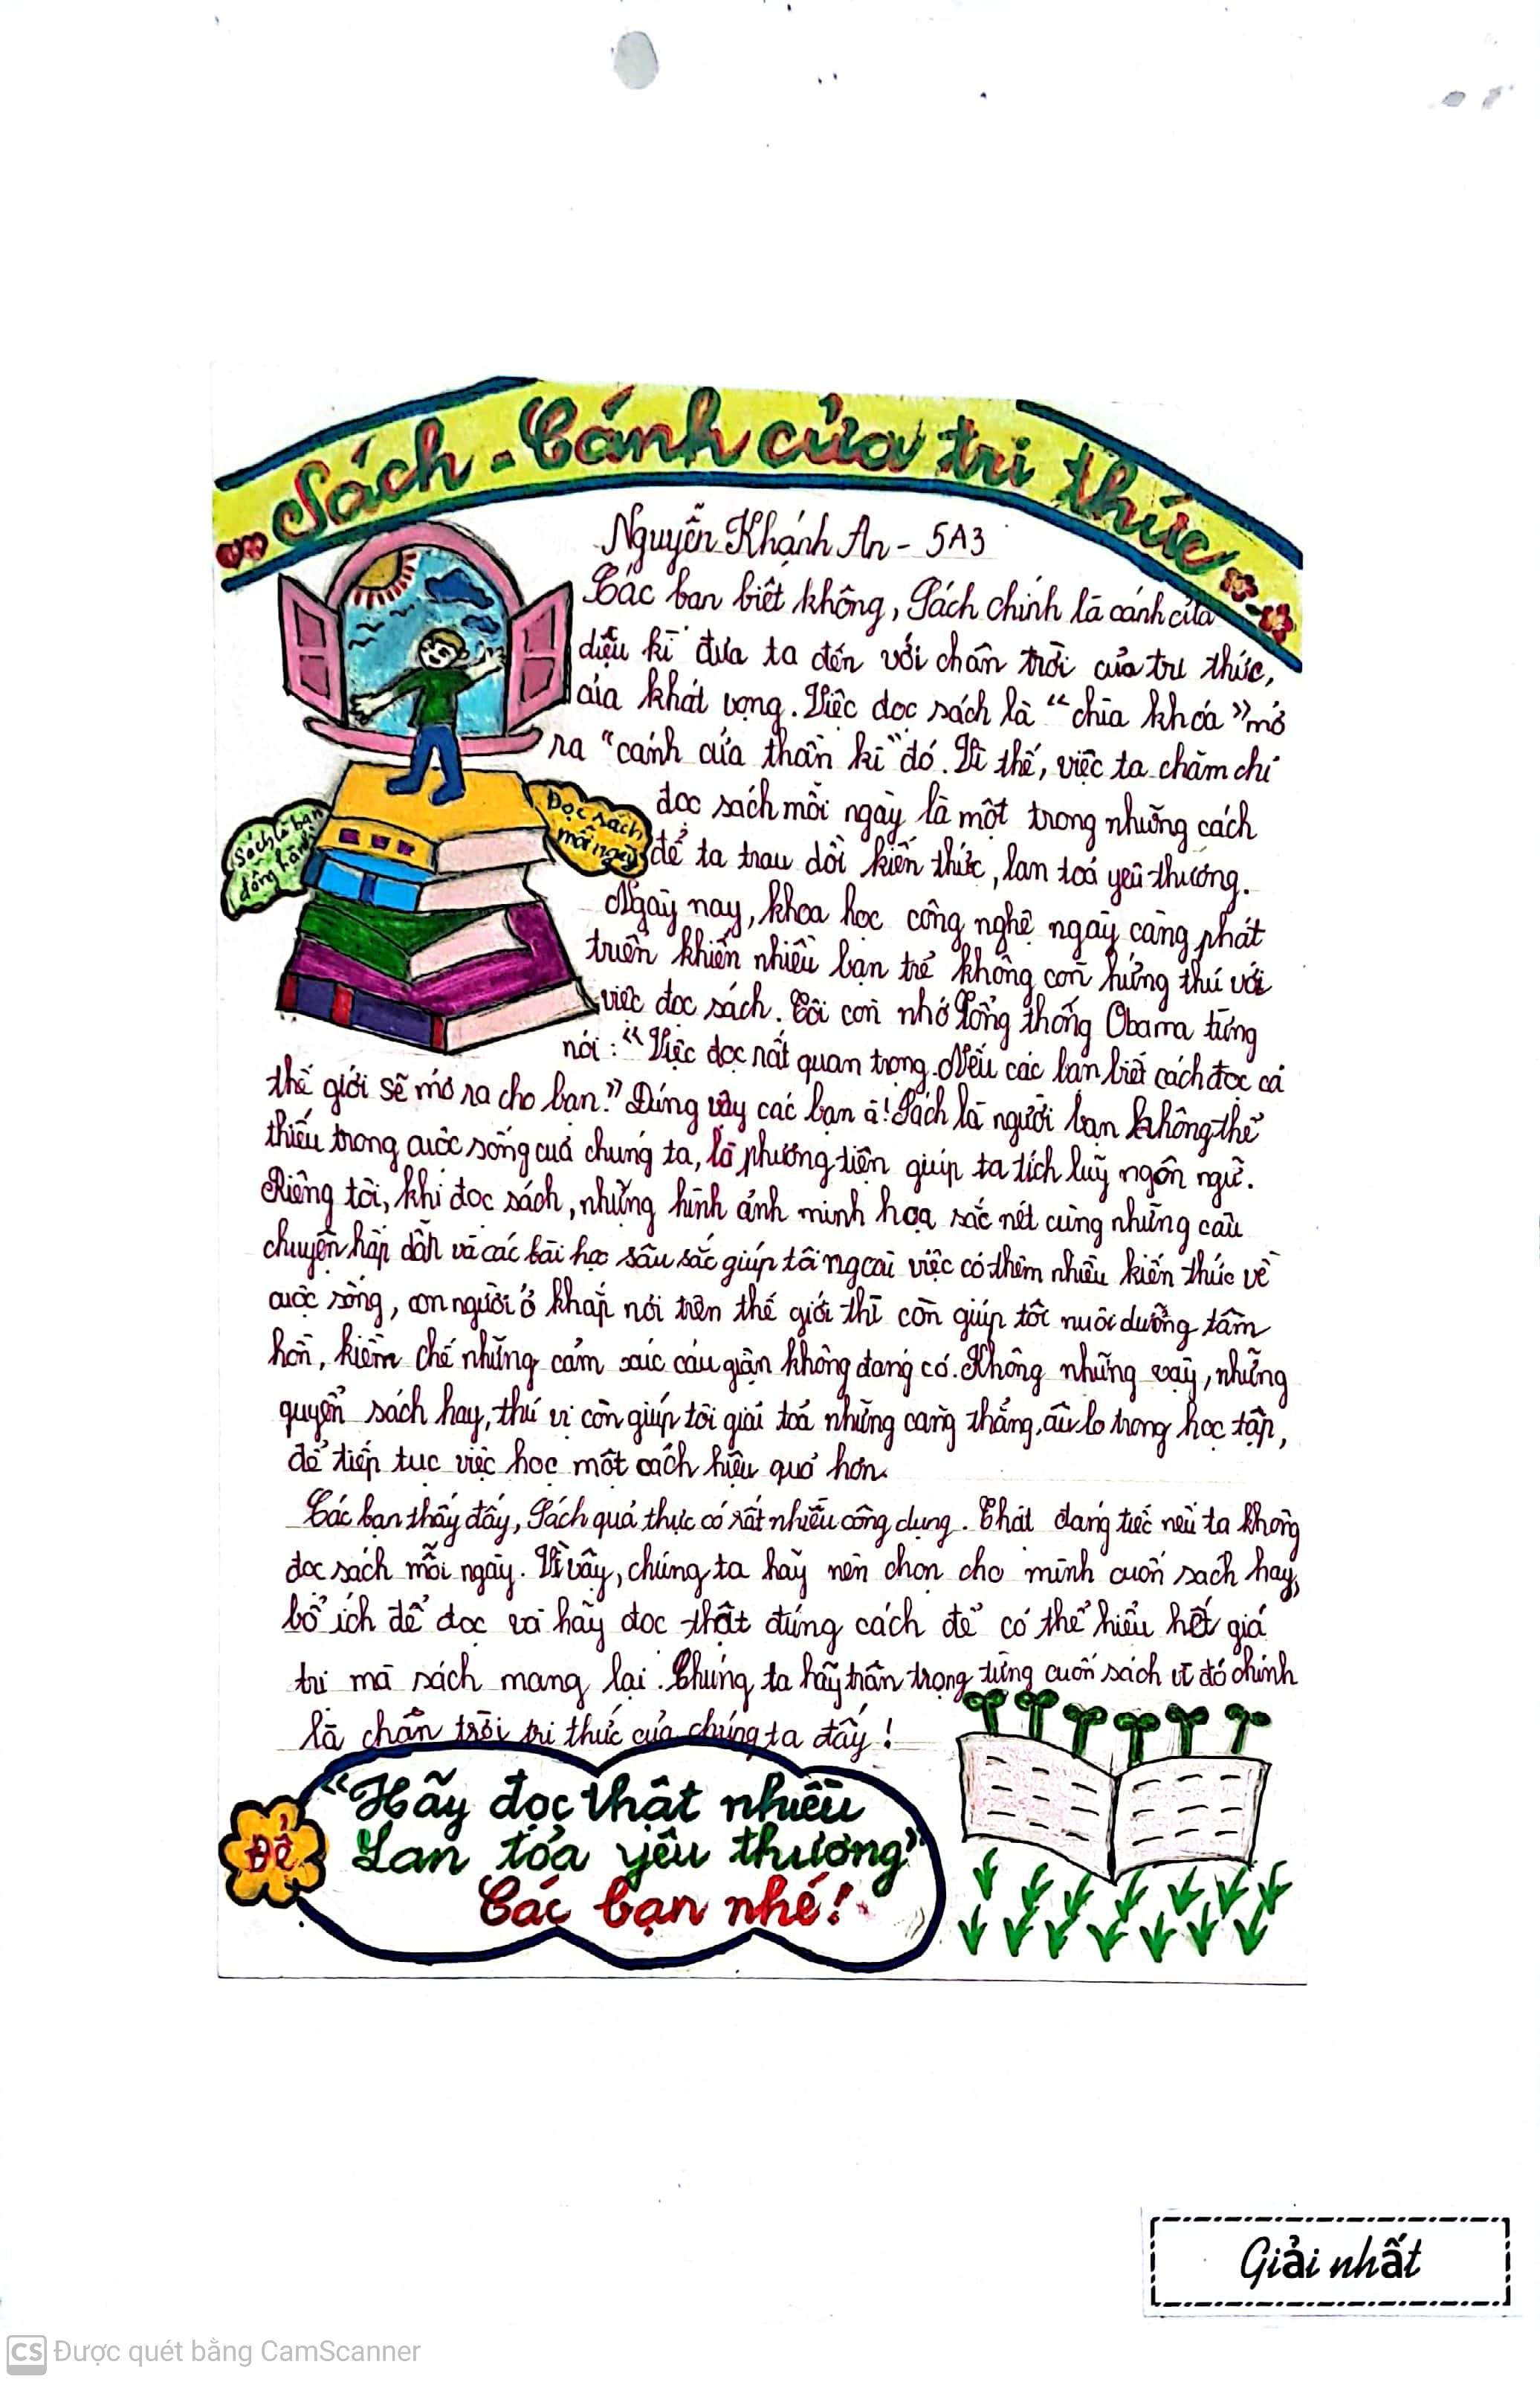 Sách - Cánh cửa tri thức
Nguyễn Khánh An - 5A3
Các bạn biết không, Sách chính là cánh cửa
diệu kì đưa ta đến với chân trời của tri thức,
của khát vọng. Việc đọc sách là "chìa khóa" mở
ra "cánh cửa thần kì" đó. Vì thế, việc ta chăm chỉ
đọc sách mỗi ngày là một trong những cách
để ta trau dồi kiến thức, lan toả yêu thương.
Sách là bạn
đồng hành
Đọc sách
mỗi ngày
Ngày nay, khoa học công nghệ ngày càng phát
triển khiến nhiều bạn trẻ không còn hứng thú với
việc đọc sách. Tôi còn nhớ Tổng thống Obama từng
nói: "Việc đọc rất quan trọng. Nếu các bạn biết cách đọc cả
thế giới sẽ mở ra cho bạn." Đúng vậy các bạn ạ! Sách là người bạn không thể
thiếu trong cuộc sống của chúng ta, là phương tiện giúp ta tích luỹ ngôn ngữ.
Riêng tôi, khi đọc sách, những hình ảnh minh hoạ sắc nét cùng những câu
chuyện hấp dẫn và các bài học sâu sắc giúp tôi ngoài việc có thêm nhiều kiến thức về
cuộc sống, con người ở khắp nơi trên thế giới thì còn giúp tôi nuôi dưỡng tâm
hồn, kiềm chế những cảm xúc cáu giận không đáng có. Không những vậy, những
quyển sách hay, thú vị còn giúp tôi giải toả những căng thẳng, âu lo trong học tập,
để tiếp tục việc học một cách hiệu quả hơn.
Các bạn thấy đấy, Sách quả thực có rất nhiều công dụng. Thật đáng tiếc nếu ta không
đọc sách mỗi ngày. Vì vậy, chúng ta hãy nên chọn cho mình cuốn sách hay,
bổ ích để đọc và hãy đọc thật đúng cách để có thể hiểu hết giá
trị mà sách mang lại. Chúng ta hãy trân trọng từng cuốn sách vì đó chính
là chân trời tri thức của chúng ta đấy!
Để
"Hãy đọc thật nhiều
Lan tỏa yêu thương"
Các bạn nhé!
Giải nhất
CS Được quét bằng CamScanner